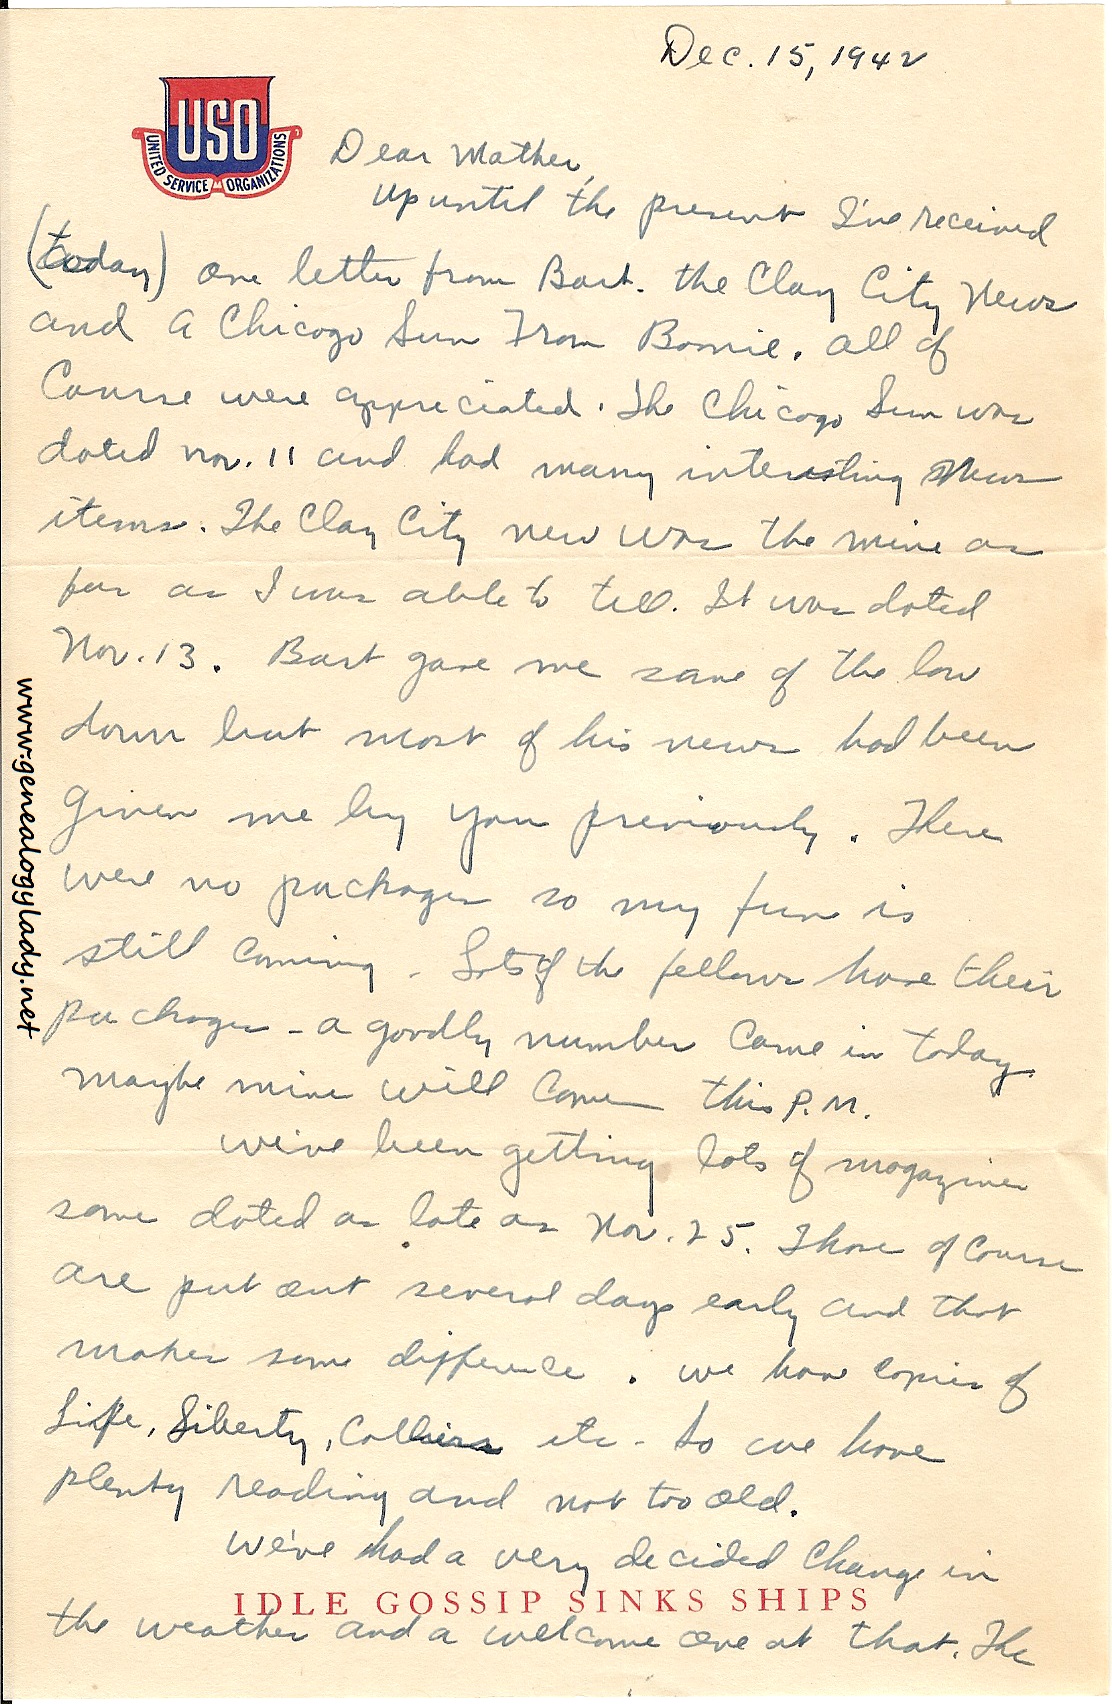 Dec. 15, 1942
USO
UNITED SERVICE ORGANIZATIONS
Dear Mother,
Up until the present I've received
(today) one letter from Bart. the Clay City News
and a Chicago Sun From Bonnie. All of
Course were appreciated. The Chicago Sun was
dated Nov. 11 and had many interesting News
items. The Clay City new was the mine as
far as I was able to tell. It was dated
Nov. 13. Bart gave me some of the low
down but most of his news had been
given me by you previously. There
were no packages so my fun is
still coming. Lots of the fellows have their
packages - a goodly number came in today.
Maybe mine will come this P.M.
We've been getting lots of magazines
some dated as late as Nov. 25. Those of Course
are put out several days early and that
makes some difference. We have copies of
Life, Liberty, Colliers etc - So we have
plenty reading and not too old.
We've had a very decided change in
IDLE GOSSIP SINKS SHIPS
the weather and a welcome one at that. The
www.genealogylady.net